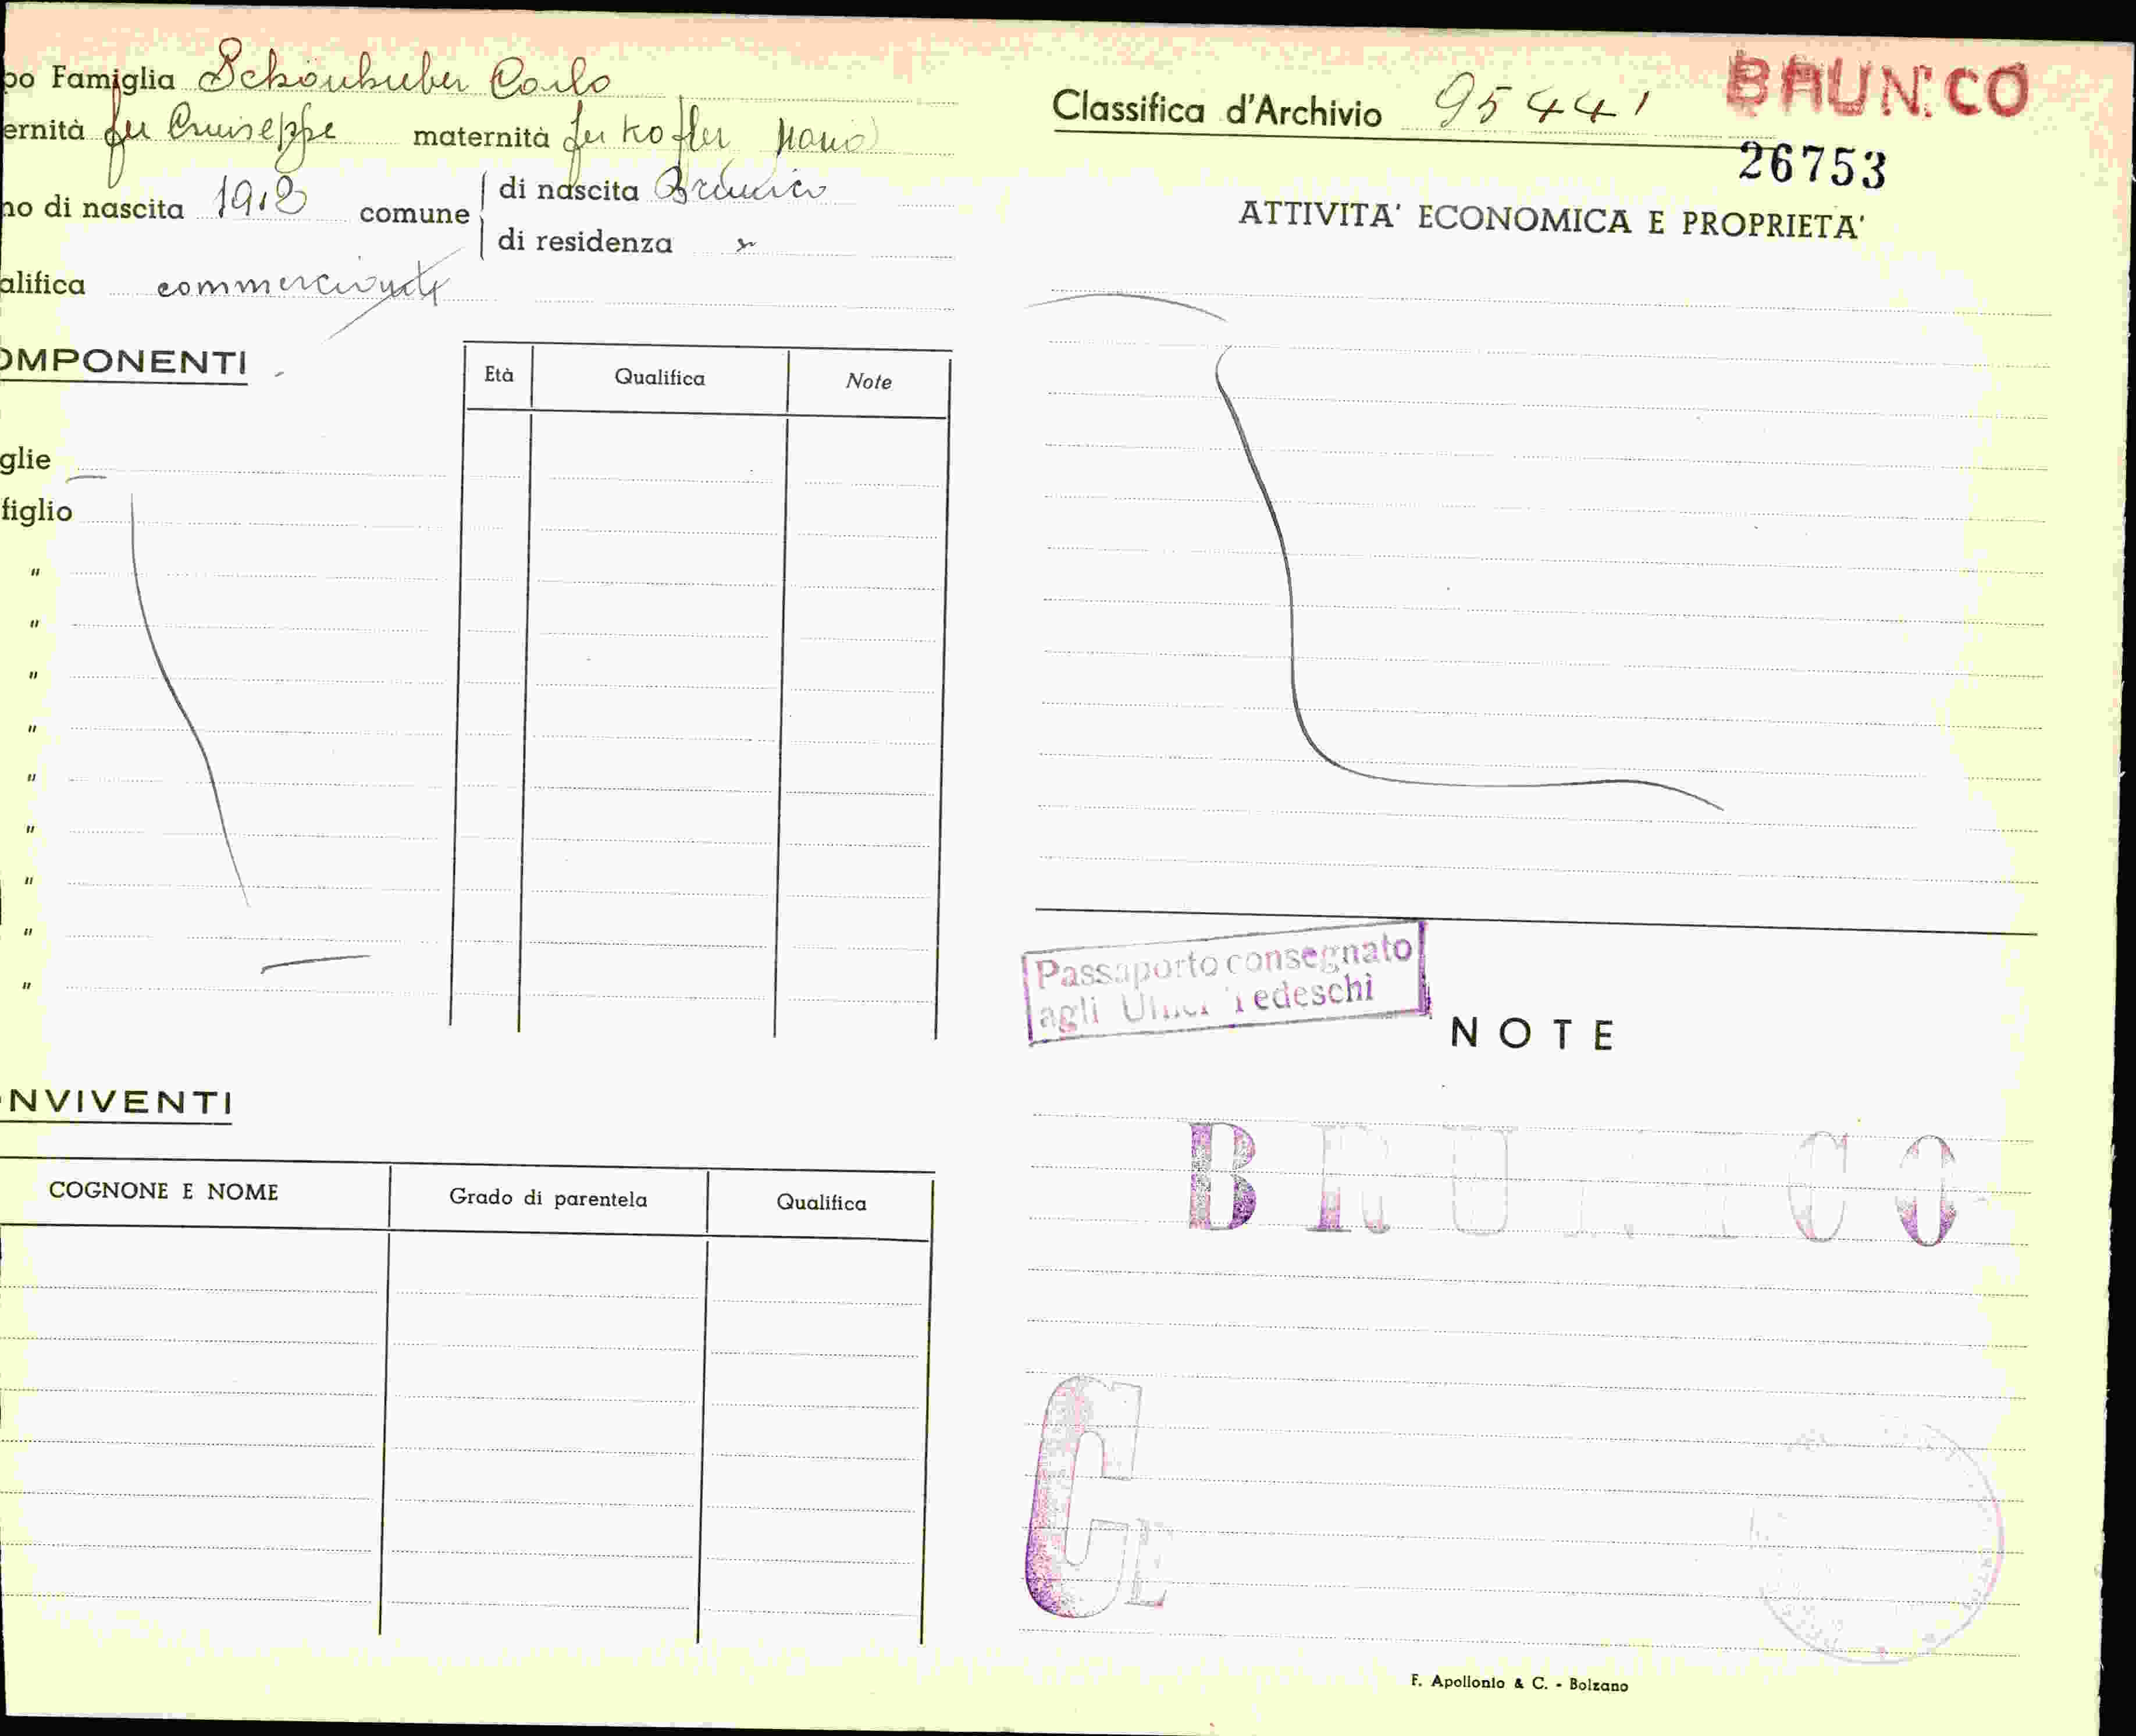 po Famiglia Schönhuber Carlo
ernità fu Giuseppe maternità fu Kofler Maria
no di nascita 1918 comune di nascita Brunico
di residenza "
alifica commerciante
OMPONENTI
Età Qualifica Note
glie
figlio
"
"
"
"
"
"
"
"
"
ONVIVENTI
COGNONE E NOME Grado di parentela Qualifica
Classifica d'Archivio 95441 BRUNICO
26753
ATTIVITA' ECONOMICA E PROPRIETA'
Passaporto consegnato
agli Uffici Tedeschi
NOTE
BRUNICO
CE
F. Apollonio & C. - Bolzano